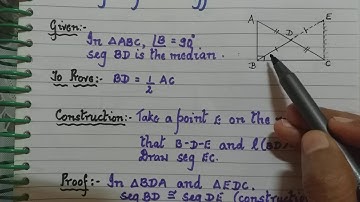 Given:-
A
E
In △ABC, ∠B = 90°.
D
seg BD is the median.
B
C
To Prove:- BD = 1/2 AC
Construction:- Take a point E on the
that B-D-E and l(BD)
Draw seg EC.
Proof:- In △BDA and △EDC,
seg BD ≅ seg DE (construction